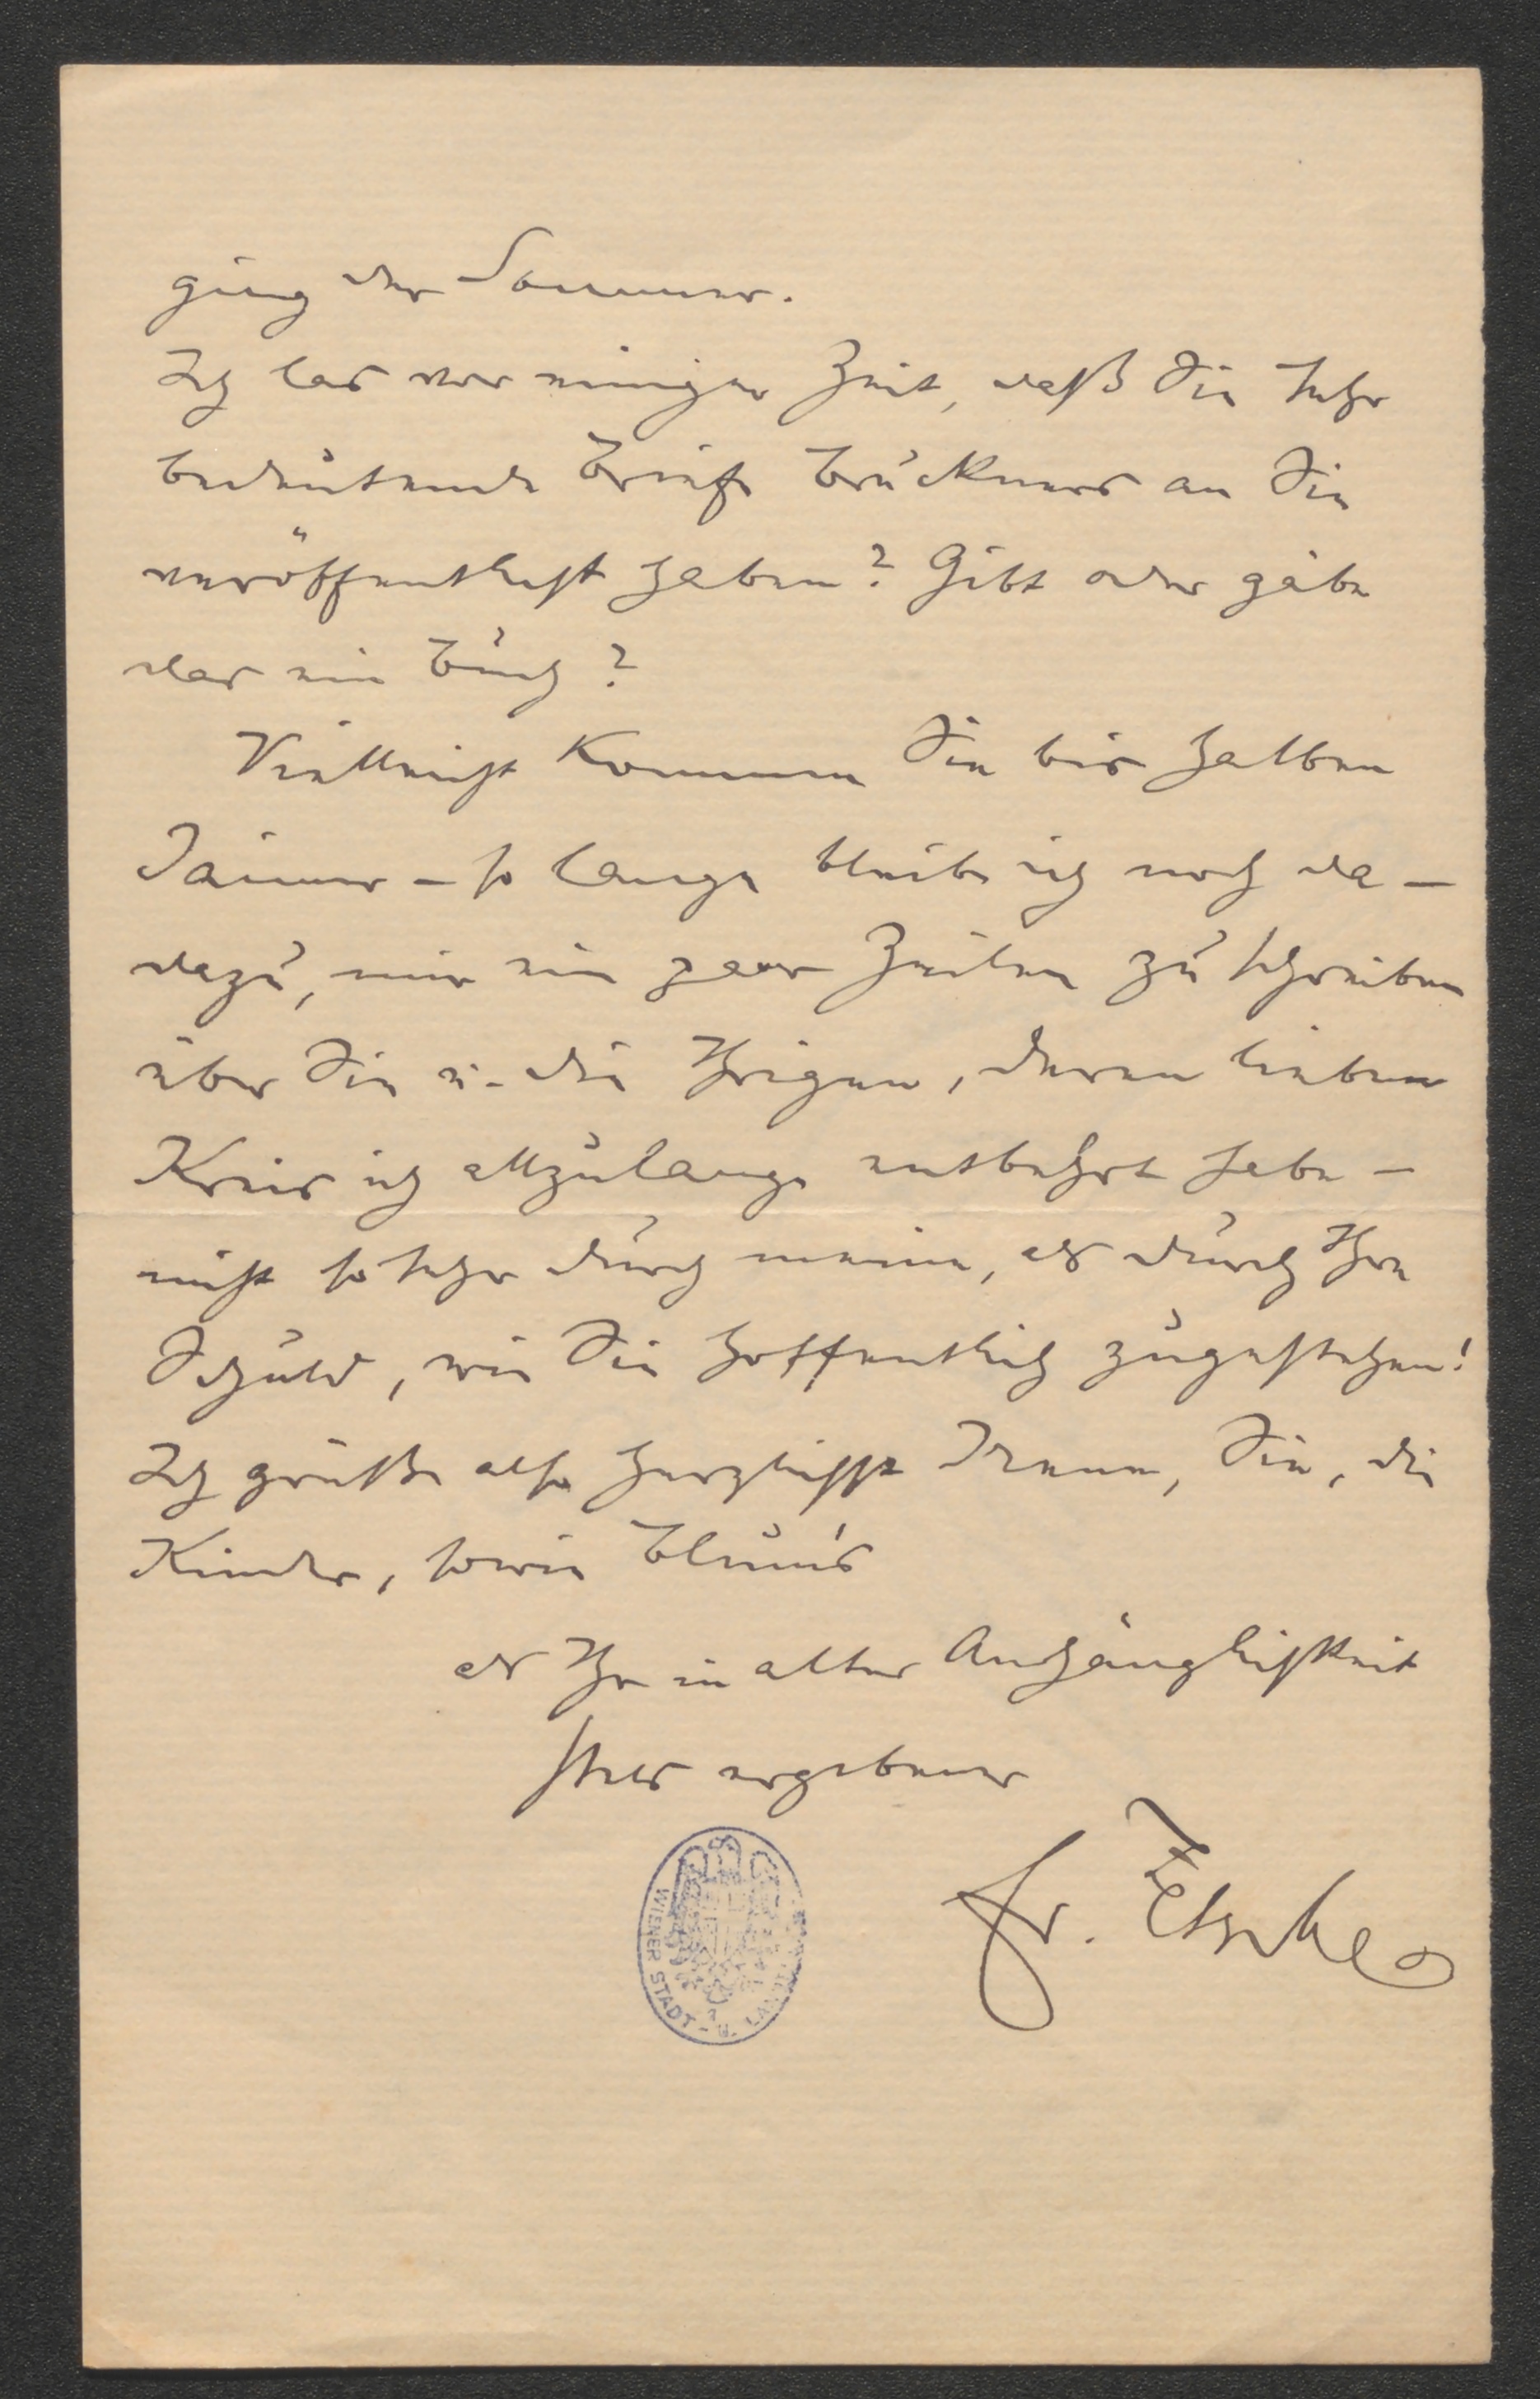 ging der Sommer.
Ich las vor einiger Zeit, daß Sie sehr
bedeutende Briefe Bruckners an Sie
veröffentlicht haben? Gibt oder gäbe
das ein Buch?
Vielleicht kommen Sie bis halben
Jänner – so lange bleibe ich noch da –
dazu, mir ein paar Zeilen zu schreiben
über Sie u. die Ihrigen, deren lieben
Kreis ich allzulange entbehrt habe –
nicht so sehr durch meine, als durch Ihre
Schuld, wie Sie hoffentlich zugestehen!
Ich grüße also herzlichst Irene, Sie, die
Kinder, sowie Blum's
als Ihr in alter Anhänglichkeit
stets ergebener
Fr.
WIENER STADT - U.